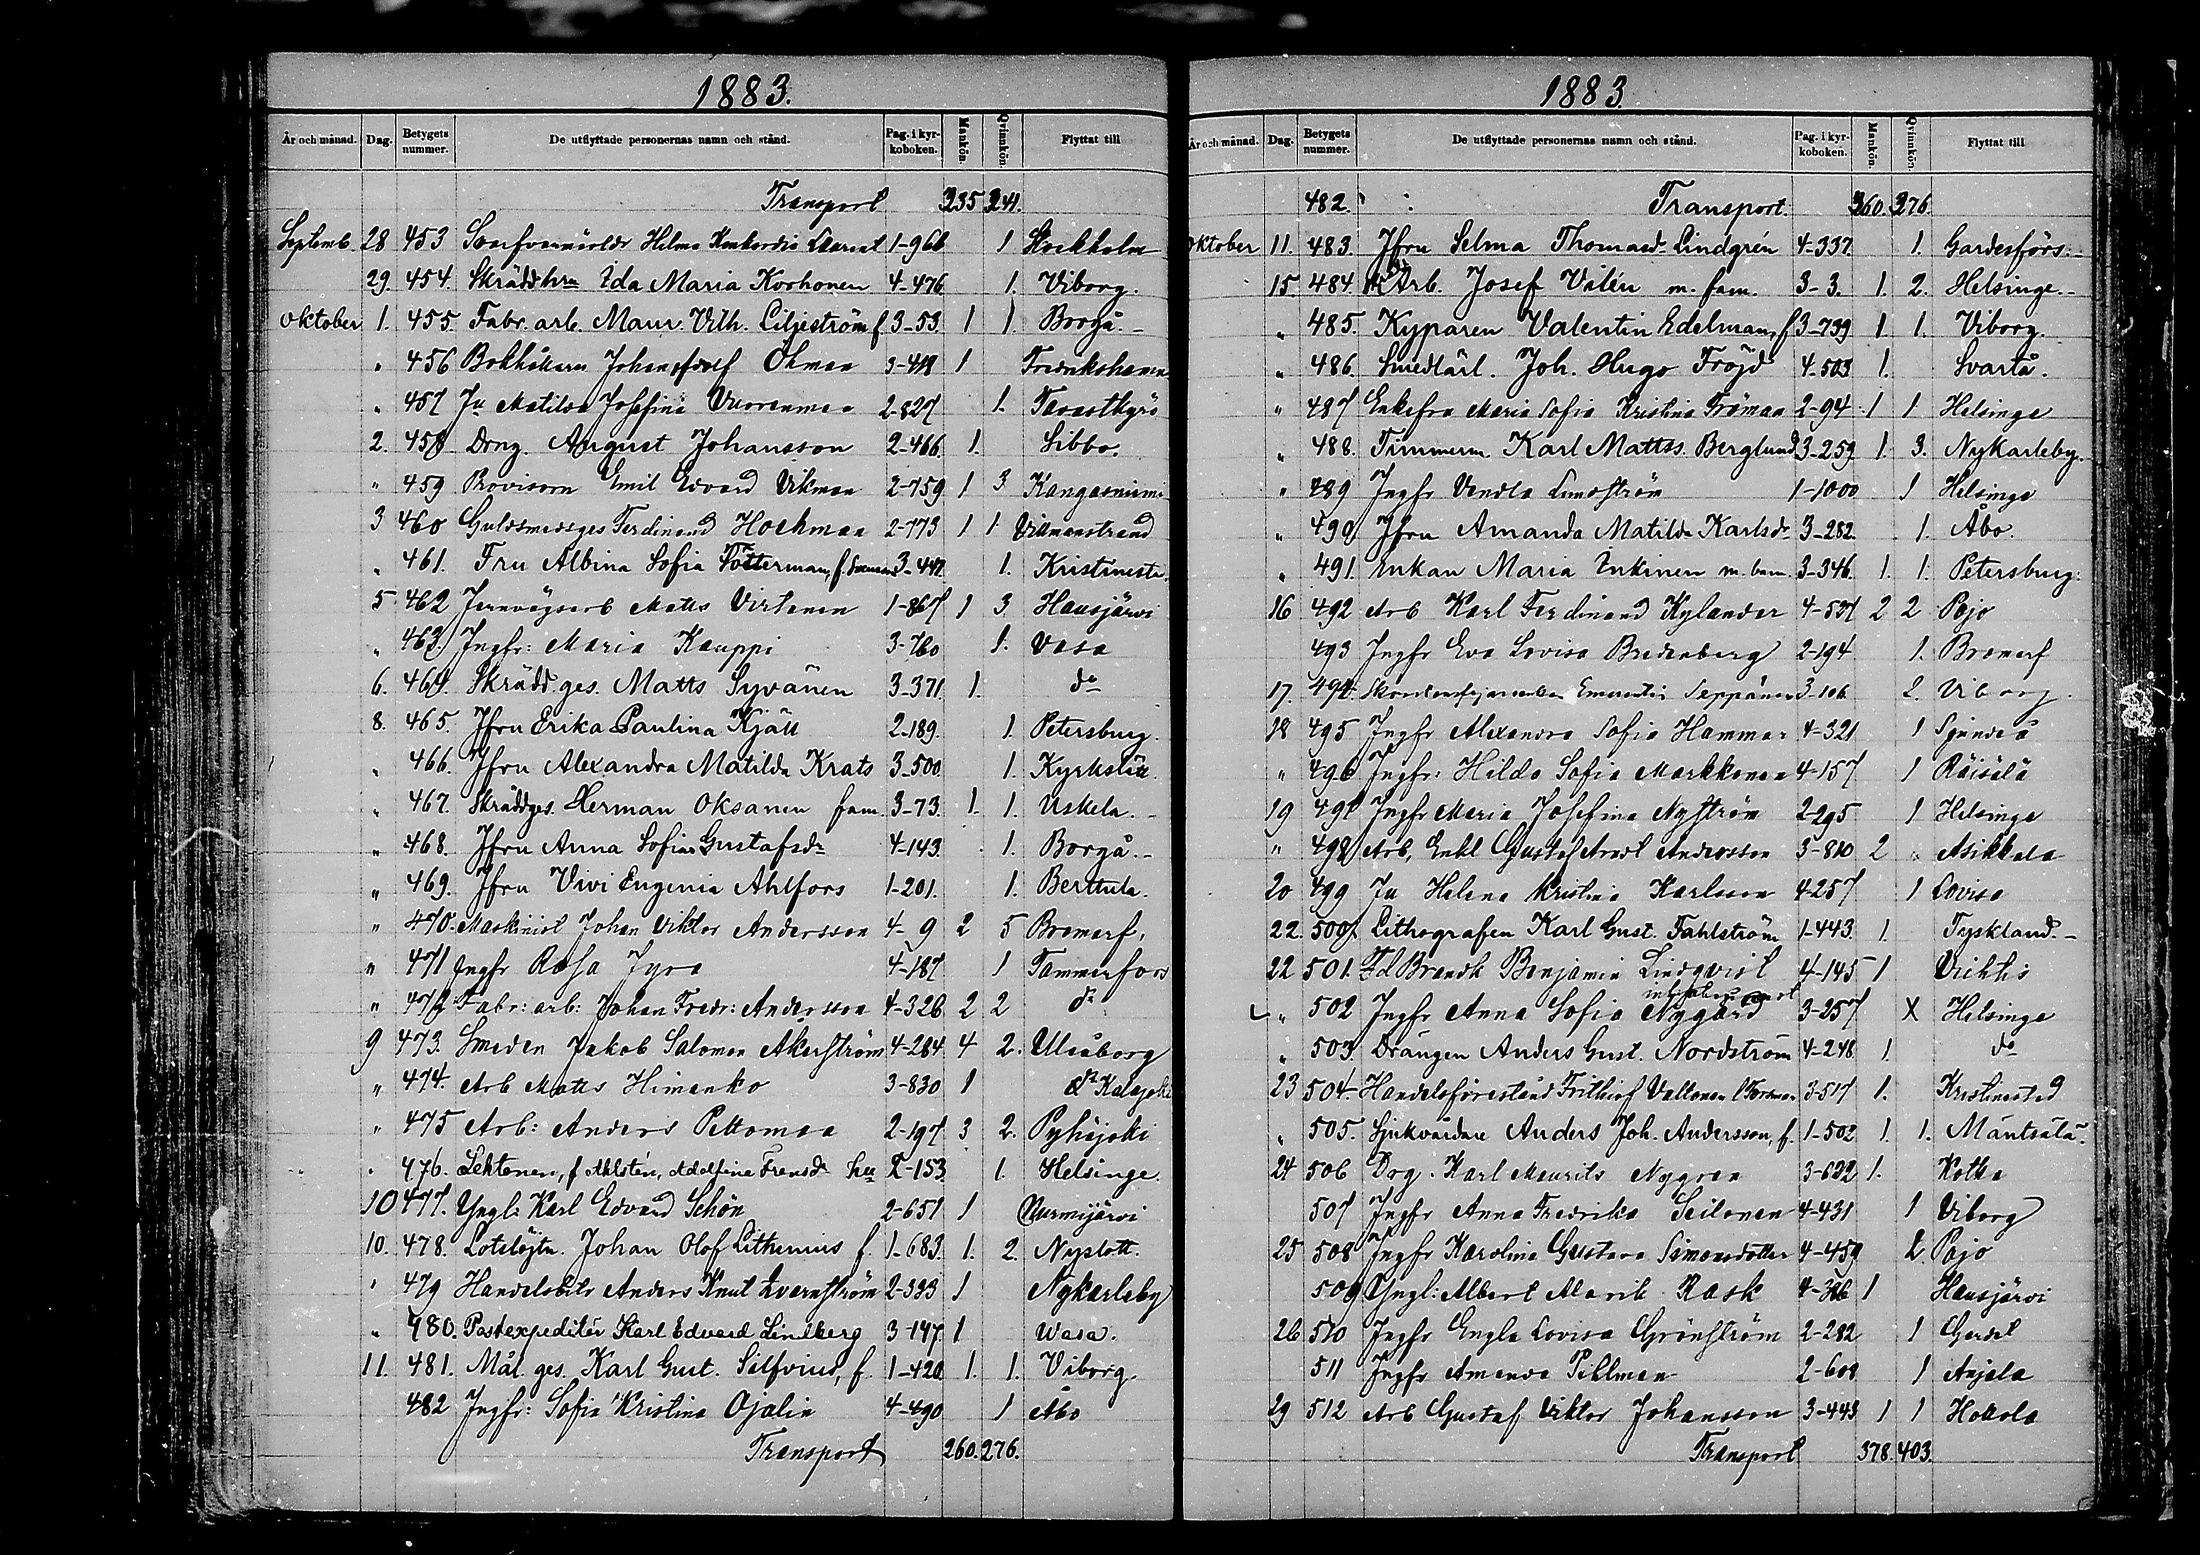 1883.
År och månad. Dag. Betygets nummer. De utflyttade personernas namn och stånd. Pag. i kyrkoboken. Mankön. Qvinnkön. Flyttat till
Transport 335 341.
Septemb. 28 453 Helma Konkordia 1-966 1 Stockholm
29. 454. Skräddhru Ida Maria Korhonen 4-476 1. Viborg.
Oktober 1. 455. Fabr. arb. Maur. Vilh. Liljeström f 3-53. 1 1. Borgå. -
" 456 Bokhållaren Johan Adolf Öhman 3-418 1 Fredrikshamn
" 457 Ja Matilda Josefina Vuorenmaa 2-827 1. Tavastkyrö
2. 458. Dräng. August Johansson 2-466. 1. Sibbo.
" 459 Provisorn Emil Edvard Vikman 2-759 1 3 Kangasniemi
3 460 Guldsmedsges Ferdinand Hochman 2-773 1 1. Villmanstrand
" 461. Fru Albina Sofia Totterman, f. 3-447. 1. Kristinesta.
5 462 Jernvägsarb Matts Virtanen 1-867 1 3. Hausjärvi
" 463. Jngfr: Maria Kauppi 3-760 1. Vasa
6. 464. Skrädd. ges. Matts Syvänen 3-371. 1. do
8. 465. Jfru Erika Paulina Kjäll 2-189. 1. Petersburg.
" 466. Jfru Alexandra Matilda Krats 3-500. 1. Kyrkslätt.
" 467. Skräddges. Herman Oksanen fam. 3-73. 1. 1. Uskela. -
" 468. Jfru Anna Sofia Gustafsdr 4-143. 1. Borgå. -
" 469. Jfru Vivi Eugenia Ahlfors 1-201. 1. Berttula.
" 470. Maskinist Johan Viktor Andersson 4-9 2 5 Bromarf.
" 471 Jngfr Rosa Jyra 4-187 1 Tammerfors
" 472. Fabr: arb: Johan Fredr: Andersson 4-326 2 2 do
9 473. Smeden Jakob Salomon Åkerström 4-284. 4 2. Uleåborg
" 474. Arb Matts Himanko 3-830 1 Kalajoki
" 475 Arb: Anders Peltomaa 2-197 3 2. Pyhäjoki
" 476. Lehtonen, f. Ahlstén, Adolfina Fransdr 2-153 1. Helsinge.
10 477. Yngl: Karl Edvard Schön 2-651 1 Nurmijärvi
10. 478. Lotslöjtn. Johan Olof Lithenius f. 1-683. 1. 2. Nyslott.
" 479 Handelsbitr Anders Knut Kvarnström 2-393 1 Nykarleby
" 480. Postexpeditör Karl Edvard Lindberg 3-147. 1 Wasa.
11. 481. Mål. ges. Karl Gust. Silfvius, f. 1-420 1. 1. Viborg.
482 Jngfr: Sofia Kristina Ojalin 4-490 1 Åbo
Transport 260. 276.
1883.
År och månad. Dag. Betygets nummer. De utflyttade personernas namn och stånd. Pag. i kyrkoboken. Mankön. Qvinnkön. Flyttat till
482. Transport. 360. 376
Oktober 11. 483. Jfru Selma Thomasd. Lindgrén 4-337. 1. Gardesförs. -
15. 484. Arb. Josef Vilén m. fam. 3-3. 1. 2. Helsinge. -
" 485. Kyparen Valentin Edelman, f 3-739 1 1. Viborg.
" 486. Smedlärl. Joh. Hugo Fröjd 4-503 1. Svartå.
" 487 Enkefru Maria Sofia Kristina Fröman 2-94 1 1 Helsinge
" 488. Timmerm. Karl Mattss. Berglund 3-259 1. 3. Nykarleby.
" 489 Jngfr Vendla Lindström 1-1000 1 Helsinge
" 490. Jfru Amanda Matilda Karlsdr 3-282. 1. Åbo.
" 491. Enkan Maria Inkinen m. barn. 3-346. 1. 1. Petersburg.
16 492 Arb Karl Ferdinand Kylander 4-527 2 2 Pojo
493 Jngfr Eva Lovisa Bredenberg 2-194 1. Bromarf
17. 494. Seppänen 3-106 2. Viborg.
18 495 Jngfr Alexandra Sofia Hammar 4-321 1 Sjundeå
" 496 Jngfr: Hilda Sofia Markkanen 4-157 1 Räisälä
19 497 Jngfr Maria Josefina Nyström 2-295 1 Helsinge
" 498 Arb, Enkl Gustaf Arvid Andersson 3-810 2 " Asikkala
20 499 Ja Helena Kristina Karlsson 4-257 1 Lovisa
22. 500. Lithografen Karl Gust. Fahlström 1-443. 1. Tyskland. -
22 501. Fd Brandk Benjamin Lindqvist 4-145 1 Vichtis
" 502 Jngfr Anna Sofia Nygård 3-257 X Helsinge
" 503. Drängen Anders Gust. Nordström 4-248 1. do
23 504. Handelsförestånd Frithiof Valtonen 3-517 1. Kristinestad
" 505. Sjukvårdare Anders Joh. Andersson, f. 1-502 1. 1. Mäntsälä.
24 506 Drg. Karl Maurits Nygren 3-622 1. Kotka
507 Jngfr Anna Fredrika Seilonen 4-431 1 Viborg
25 508 Jngfr Karolina Gustava Simonsdotter 4-459 2. Pojo
509 Yngl: Albert Alarik Rask 4-386 1 Hausjärvi
26 510 Jngfr Engla Lovisa Grönström 2-282 1
511 Jngfr Amanda Pihlman 2-608 1 Anjala
29 512 Arb Gustaf Viktor Johansson 3-443 1 1 Hollola
Transport 378. 403.